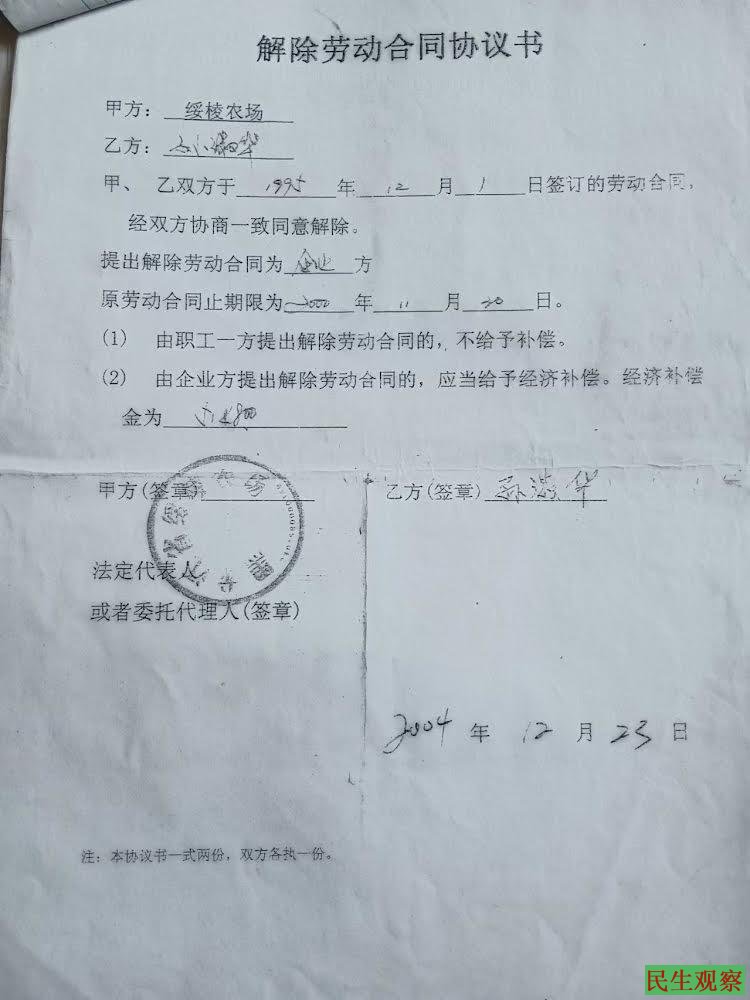 解除劳动合同协议书
甲方：绥棱农场
乙方：
甲、乙双方于 1995 年 12 月 1 日签订的劳动合同，
经双方协商一致同意解除。
提出解除劳动合同为 企业 方
原劳动合同止期限为 2000 年 11 月 20 日。
(1) 由职工一方提出解除劳动合同的，不给予补偿。
(2) 由企业方提出解除劳动合同的，应当给予经济补偿。经济补偿
金为
甲方(签章) 乙方(签章)
法定代表人
或者委托代理人(签章)
2004 年 12 月 23 日
注：本协议书一式两份，双方各执一份。
民生观察